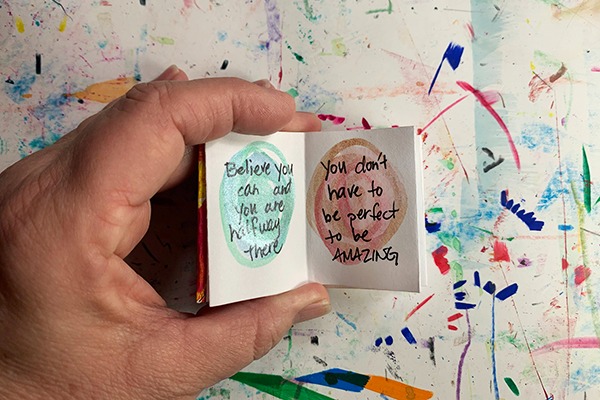 Believe you
can and
you are
halfway
there
You don't
have to
be perfect
to be
AMAZING